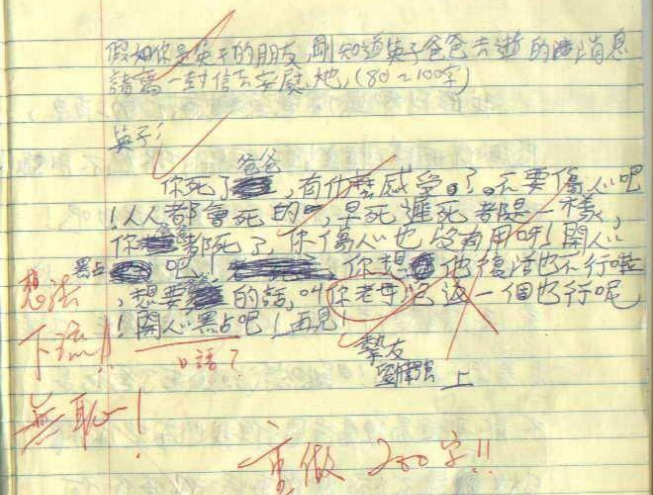 假如你是英子的朋友,剛知道英子爸爸去逝的消息
請寫一封信去安慰她,(80~100字)
英子:
你死了爸爸,有什麼感受。了。不要傷心吧
!人人都會死的,早死遲死都是一樣,
你爸爸都死了,你傷心也沒有用呀!開心
點吧,你想他復活也不行啦
,想要的話,叫你老母另返一個也行呢
!開心點吧!再見!
摯友
劉偉強 上
想法
下流!!
無恥!
口語?
重做 200字!!